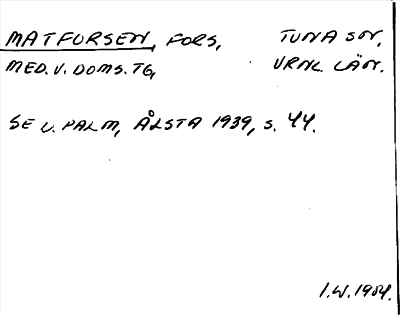 MATFORSEN, FORS, TUNA SN,
MED. V. DOMS. TG, VRNL. LÄN.
SE V. PALM, ÅLSTA 1939, S. 44.
I.W. 1984.